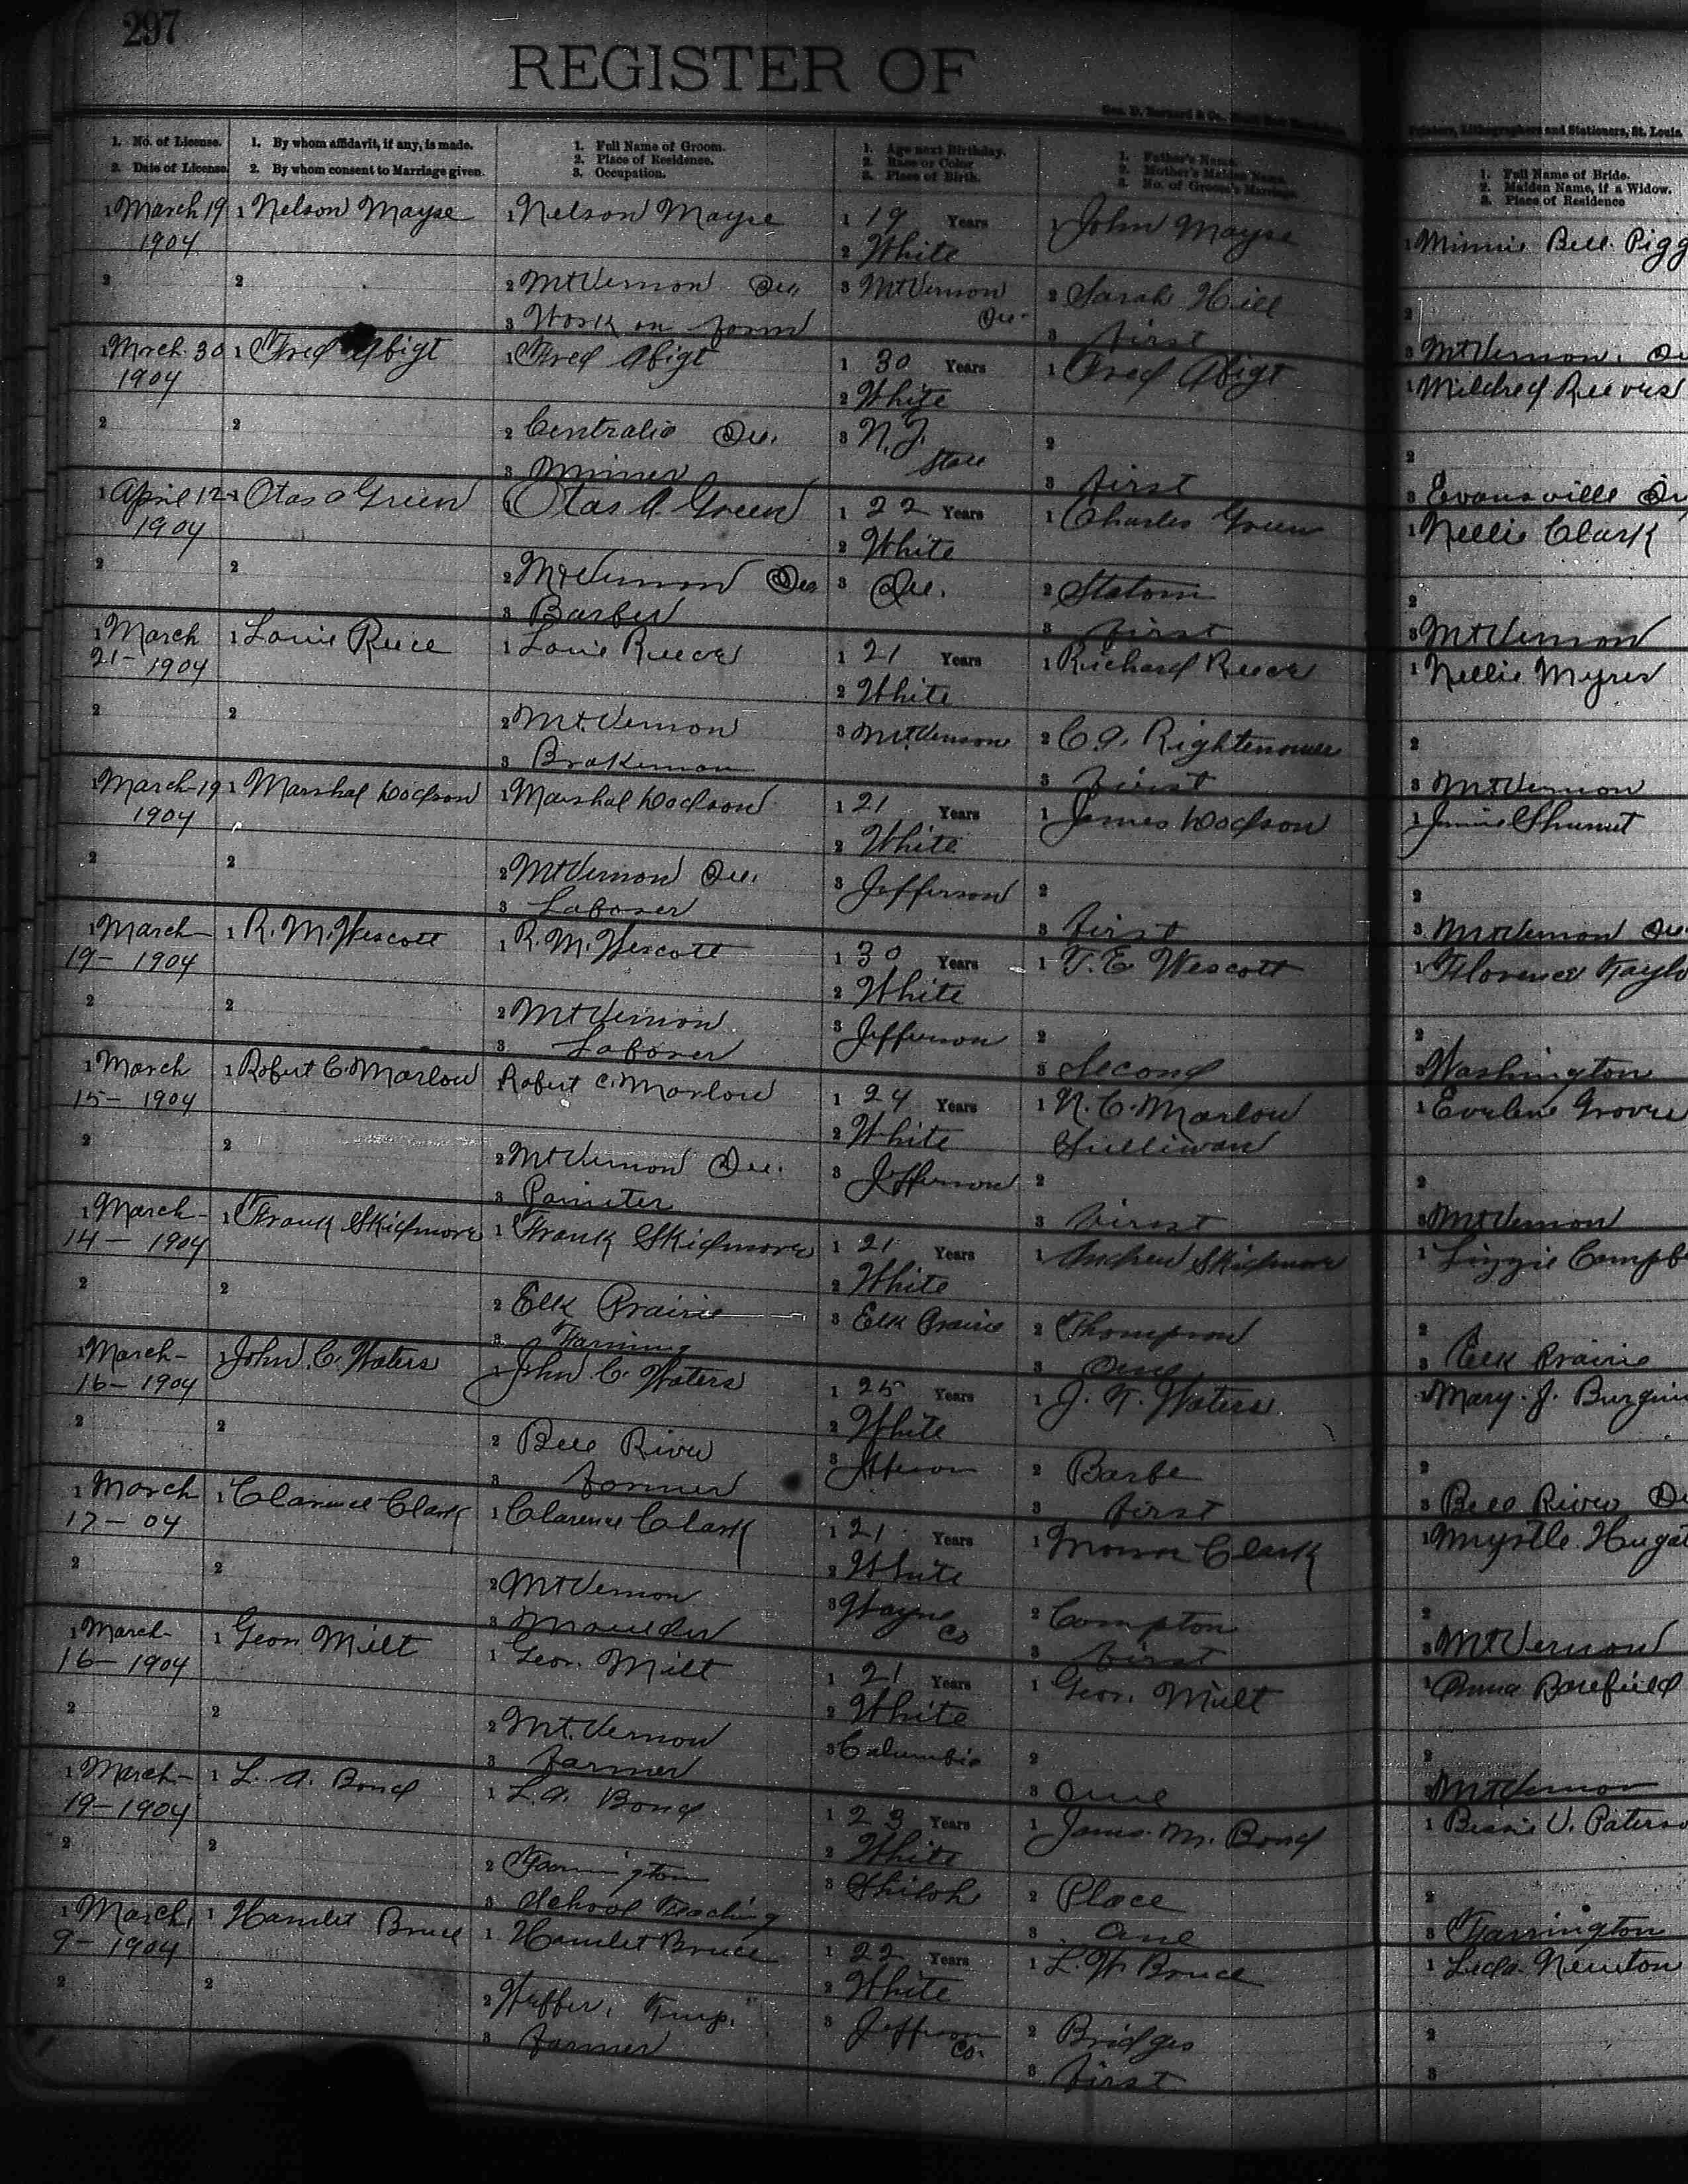 297
REGISTER OF
Printers, Lithographers and Stationers, St. Louis.
1. No. of License.
2. Date of License.
1. By whom affidavit, if any, is made.
2. By whom consent to Marriage given.
1. Full Name of Groom.
2. Place of Residence.
3. Occupation.
1. Age next Birthday.
2. Race or Color
3. Place of Birth.
1. Father's Name.
2. Mother's Maiden Name.
3. No. of Groom's Marriage.
1. Full Name of Bride.
2. Maiden Name, if a Widow.
3. Place of Residence
1 March 19 1 Nelson Mayse 1 Nelson Mayse 1 19 Years 1 John Mayse 1 Minnie Bell Pigg
1904 2 White
2 2 2 Mt Vernon Ill 3 Mt Vernon Ill 2 Sarah Hill 2
3 Work on farm 3 first 3 Mt Vernon
1 March 30 1 Fred Abigt 1 Fred Abigt 1 30 Years 1 Fred Abigt 1 Mildred Reeves
1904 2 White
2 2 2 Centralia Ill. 3 N.J. State 2 2
3 Miner 3 first 3 Evansville
1 April 12 1 Otas a Green 1 Otas A. Green 1 22 Years 1 Charles Green 1 Nellie Clark
1904 2 White
2 2 2 Mt Vernon Ill 3 Ill. 2 2
3 Barber 3 first 3 Mt Vernon
1 March 1 Louie Reece 1 Louie Reece 1 21 Years 1 Richard Reece 1 Nellie Myres
21- 1904 2 White
2 2 2 Mt. Vernon 3 Mt. Vernon 2 C.A. Rightenower 2
3 Brakeman 3 first 3 Mt Vernon
1 March 19 1 Marshal Dodson 1 Marshal Dodson 1 21 Years 1 James Dodson 1
1904 2 White
2 2 2 Mt Vernon Ill. 3 Jefferson 2 2
3 Laborer 3 first 3 Mt Vernon Ill
1 March- 1 R. M. Wescott 1 R. M. Wescott 1 30 Years 1 T. E Wescott 1 Florence Taylo
19- 1904 2 White
2 2 2 Mt Vernon 3 Jefferson 2 2
3 Laborer 3 Second 3 Washington
1 March 1 Robert C. Marlow 1 Robert C. Marlow 1 24 Years 1 N. C. Marlow 1 Evelene Grove
15- 1904 2 White Sullivan
2 2 2 Mt Vernon Ill. 3 Jefferson 2 2
3 Painter 3 first 3 Mt Vernon
1 March- 1 Frank Skidmore 1 Frank Skidmore 1 21 Years 1 Andrew Skidmore 1 Lizzie Campb
14- 1904 2 White
2 2 2 Elk Prairie 3 Elk Prairie 2 Thompson 2
3 Farming 3 One 3 Elk Prairie
1 March- 1 John. C. Waters 1 John. C. Waters 1 25 Years 1 J. T. Waters 1 Mary. J. Burgin
16- 1904 2 White
2 2 2 Bell River 3 Jefferson 2 Barbe 2
3 farmer 3 first 3 Bell River
1 March 1 Clarence Clark 1 Clarence Clark 1 21 Years 1 Clark 1 Myrtle
17-04 2 White
2 2 2 Mt Vernon 3 Wayne Co 2 Compton 2
3 Moulder 3 first 3 Mt Vernon
1 March- 1 Geor. Milt 1 Geor. Milt 1 21 Years 1 Geor. Milt 1 Anna Barefield
16- 1904 2 White
2 2 2 Mt. Vernon 3 Columbia 2 2
3 farmer 3 One 3 Mt Vernon
1 March- 1 L. A. Bond 1 L. A. Bond 1 23 Years 1 James. M. Bond 1 Bessie V. Paterso
19-1904 2 White
2 2 2 Farrington 3 Shiloh 2 Place 2
3 School Teaching 3 One 3 Farrington
1 March, 1 Hamlet Bruce 1 Hamlet Bruce 1 22 Years 1 L. W. Bruce 1 Leda. Newton
9- 1904 2 White
2 2 2 3 Jefferson Co. 2 Bridges 2
3 farmer 3 first 3